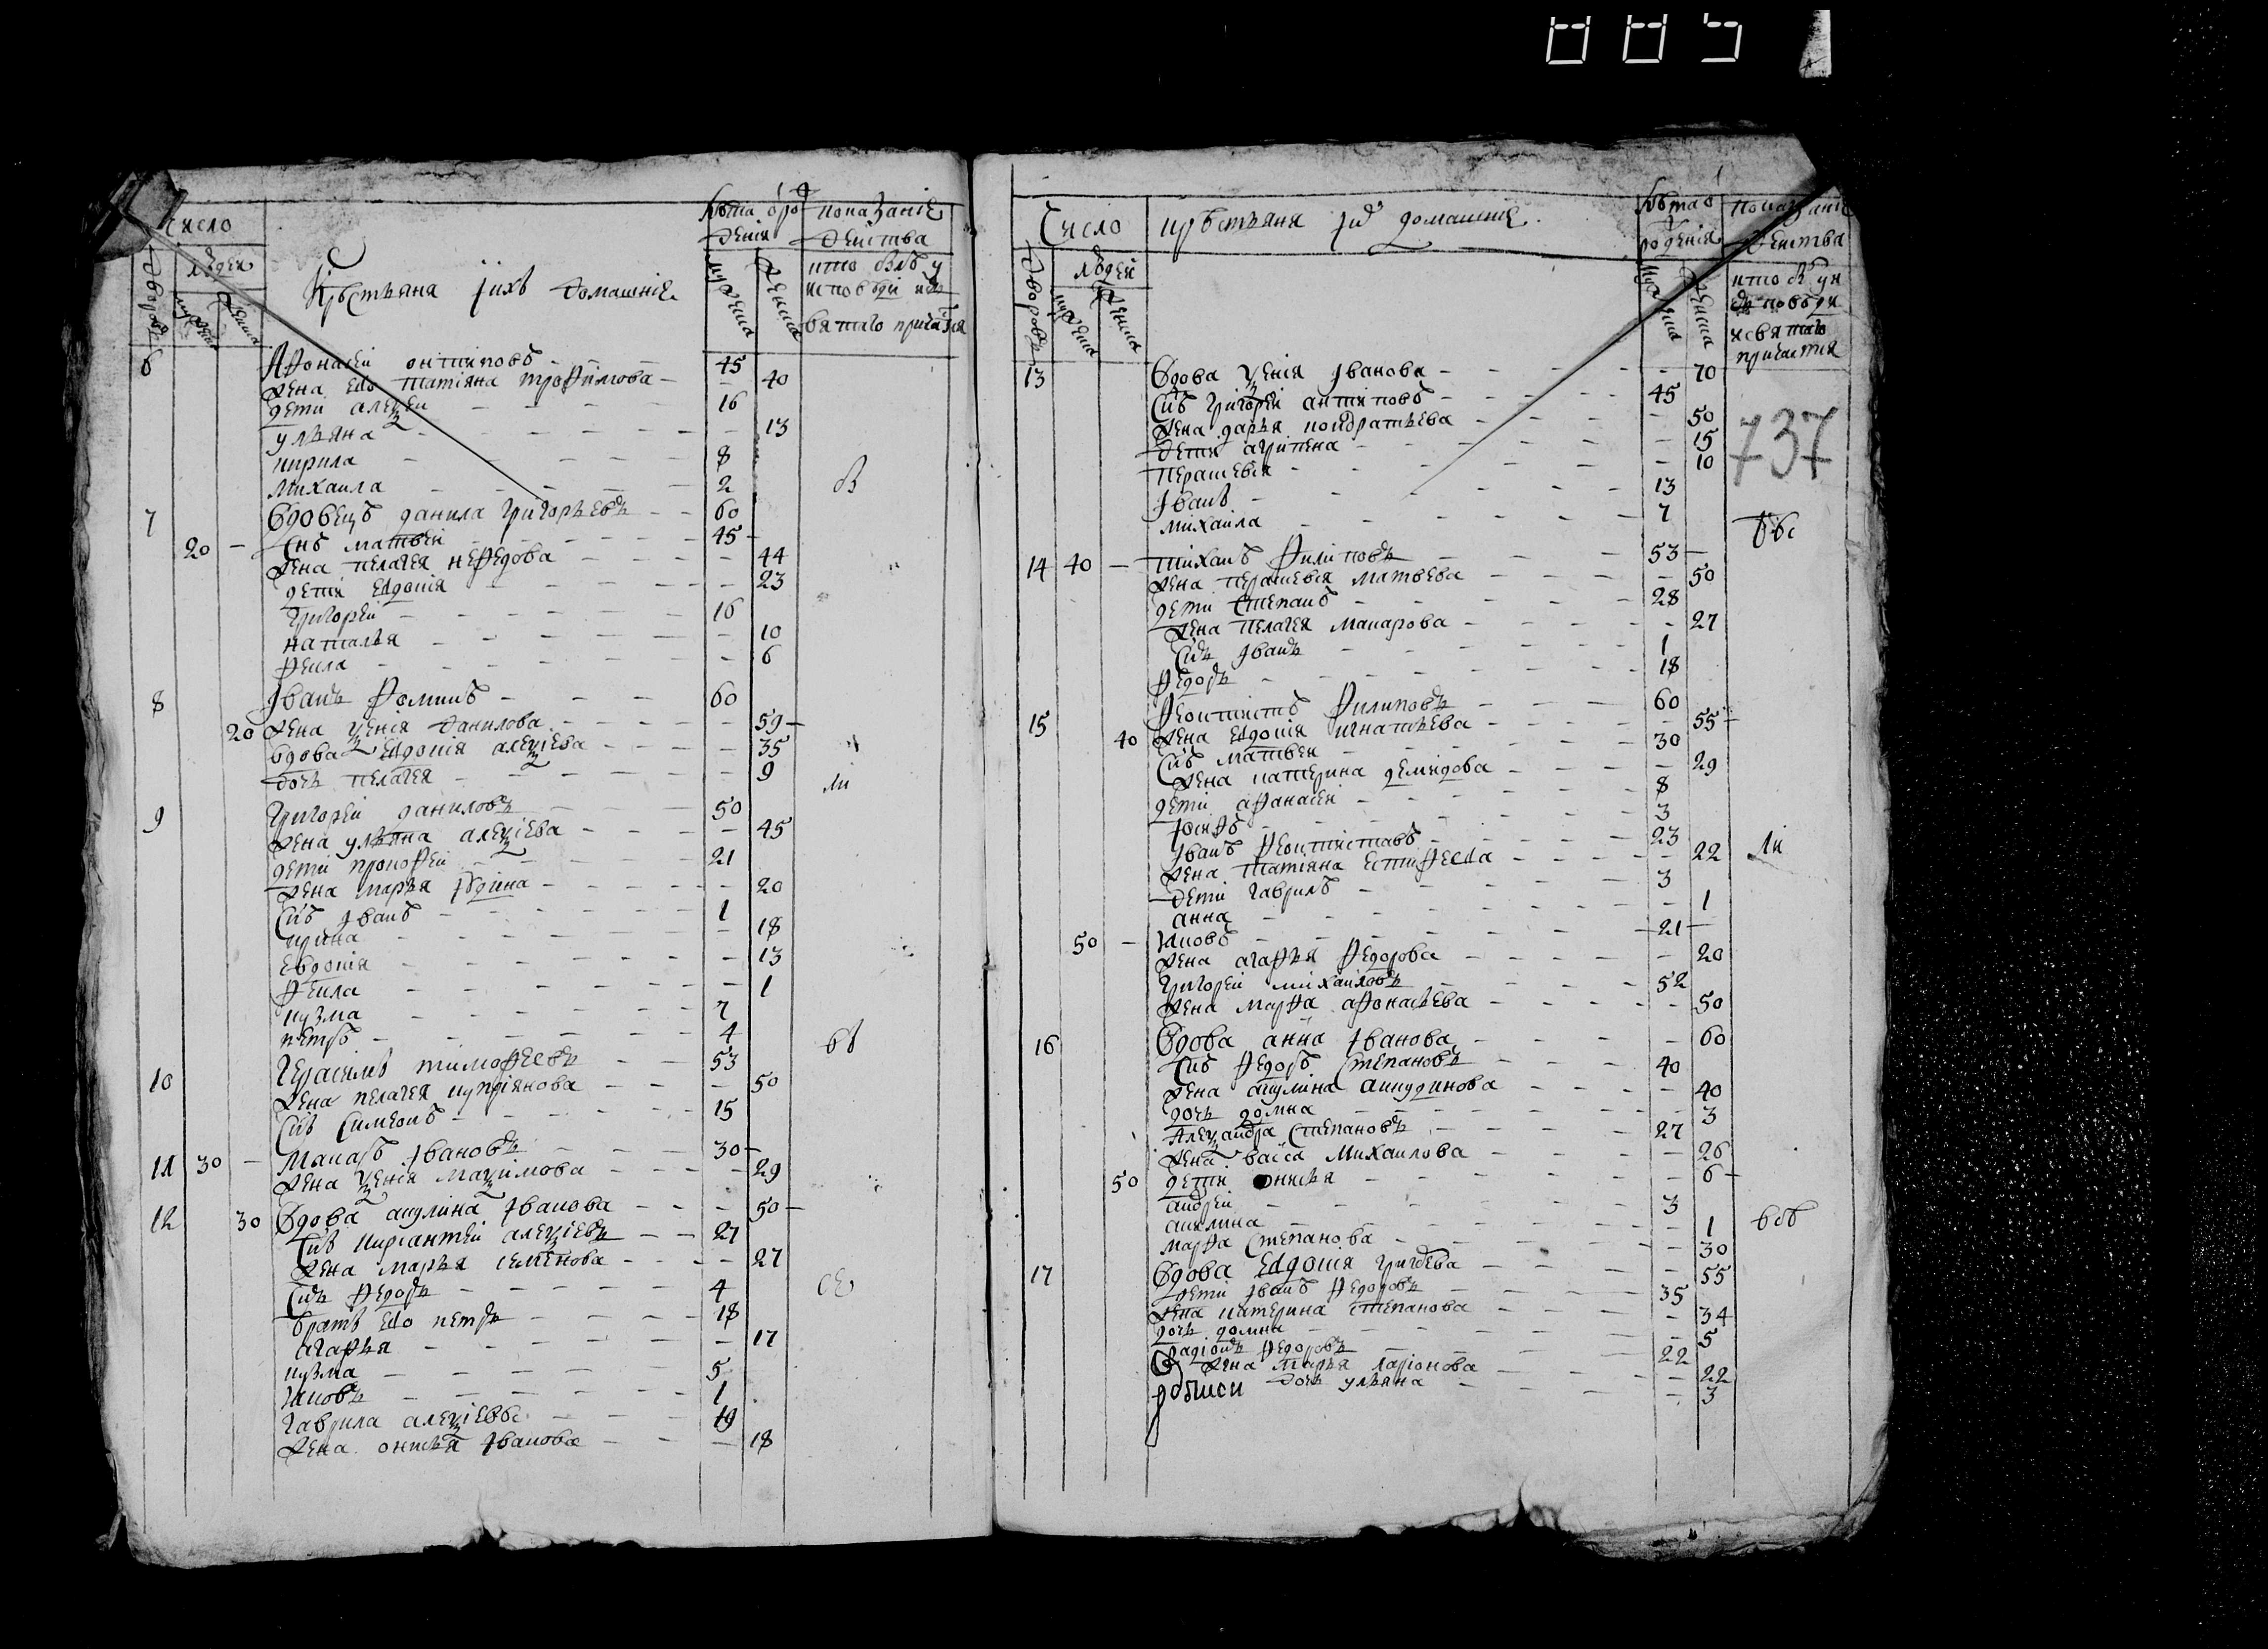 Число
Крестьяня и ихъ домашние
Лета отро
дения
показание
действа
людей
Дворовъ
мужеска
женска
мужеска
женска
кто былъ у
исповеди и с
вятаго причастия
6 Афонасей онтиповъ 45
жена ево татияна трофимова 40
дети алеѯей 16
ульяна 13
кирила 8
михаила 2
в
7 Вдовецъ данила григорьевъ 60
20 Снъ матвей 45
жена пелагея нефедова 44
дети евдокия 23
григорей 16
наталья 10
фекла 6
8 Иванъ фоминъ 60
20 жена ѯения данилова 59
вдова евдокия алеѯиева 35
дочь пелагея 9
ли
9 григорей даниловъ 50
жена ульяна алеѯиева 45
дети прокофей 21
жена марья юдина 20
Снъ иванъ 1
ирина 18
евдокия 13
фекла 1
кузма 7
петръ 4
10 герасимъ тимофеевъ 53
жена пелагея куприянова 50
Снъ симеонъ 15
11 30 Макаръ ивановъ 30
жена ѯения маѯимова 29
12 30 Вдова акулина иванова 50
Снъ кирсантей алеѯиевъ 27
жена марья семенова 27
Снъ федоръ 4
се
братъ ево петръ 18
агафья 17
кузма 5
иаковъ 1
гаврила алеѯиевъ 19
жена онисья иванова 18
Число
крестьяня и ихъ домашние
Летаъ
рождения
показание
действа
людей
Дворовъ
мужеска
женска
кто былъ у
исповеди
и святаго
причастия
13 Вдова ѯения иванова 70
Снъ григорей антиповъ 45
жена дарья кондратьева 50
дети агрипена 15
737
парасковья 10
Иванъ 13
михаила 7
14 40 тиханъ филиповъ 53
жена парасковья матвеева 50
дети степанъ 28
жена пелагея макарова 27
Снъ иванъ 1
федоръ 18
15 феоктистъ филиповъ 60
40 жена евдокия игнатьева 55
Снъ матвей 30
жена катерина демидова 29
дети афанасей 8
иосифъ 3
Иванъ феоктистовъ 23
ли
жена татияна естифеева 22
дети гаврилъ 3
анна 1
50 иаковъ 21
жена агафья федорова 20
григорей михайловъ 52
жена марфа афонасьева 50
16 Вдова анна иванова 60
Снъ федоръ степановъ 40
жена акулина анкудинова 40
дочь домна 3
Алеѯандра степановъ 27
жена васса михаилова 26
50 дети онисья 6
андрей 3
акилина 1
марфа степанова 30
17 Вдова евдокия григорева 55
дети иванъ федоровъ 35
жена катерина степанова 34
дочь домна 5
радионъ федоровъ 22
жена марья ларионова 22
дочь ульяна 3